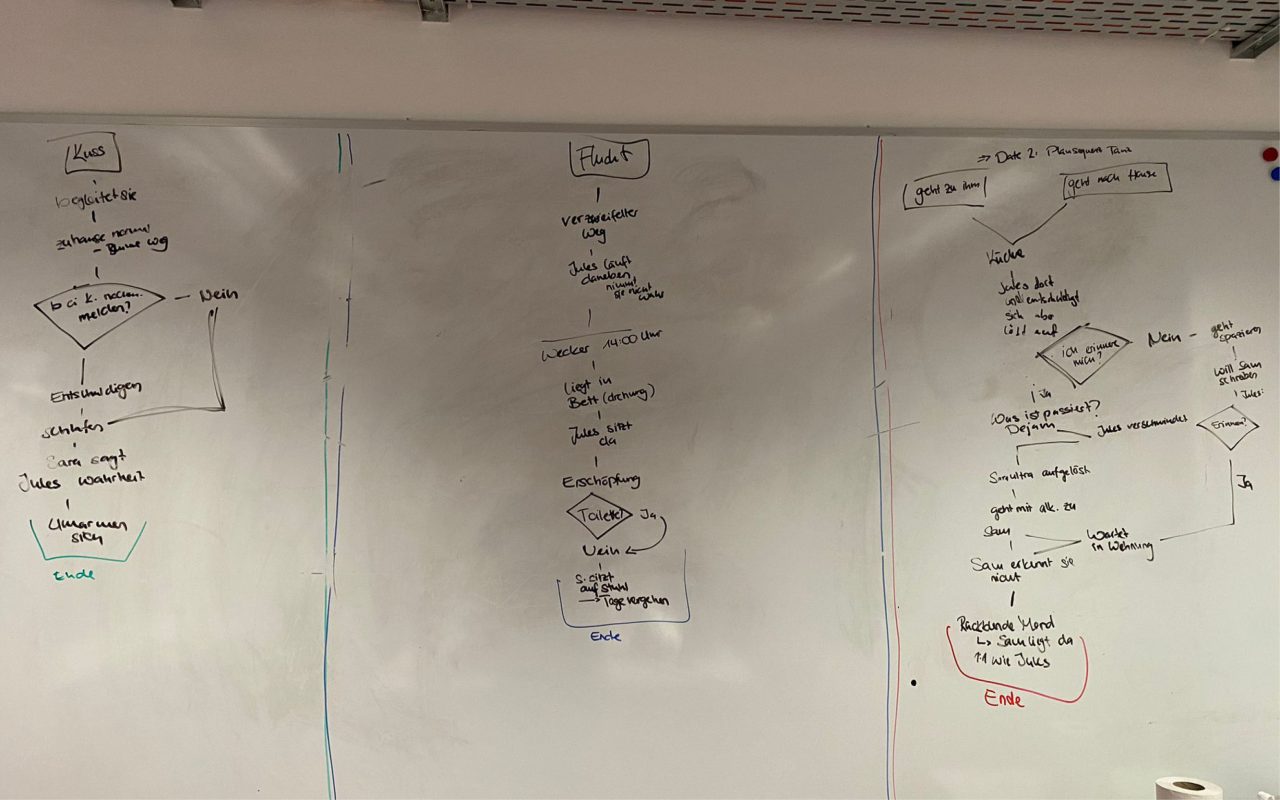 Kuss
begleitet sie
zuhause normal
- Blume weg
bei K. nochm.
melden?
Nein
Entschuldigen
schlafen
Sara sagt
Jules Wahrheit
Umarmen
sich
Ende
Flucht
verzweifelter
Weg
Jules läuft
daneben
nimmt
sie nicht
wahr
Wecker 14:00 Uhr
Liegt in
Bett (drehung)
Jules sitzt
da
Erschöpfung
Toilette?
Ja
Nein
S. sitzt
auf Stuhl
→ Tage vergehen
Ende
⇒ Date 2: Tanz
geht zu ihm
geht nach Hause
Küche
Jules dort
und entschuldigt
sich aber
löst auf
ich erinnere
mich?
Nein
geht
spazieren
will Sam
schreiben
Jules:
Erinnern?
Ja
Ja
Was ist passiert?
Dejam
Jules verschwindet
Sara ultra aufgelöst
geht mit alk. zu
Sam
Wartet
in Wohnung
Sam erkennt sie
nicht
Rückblende Mord
↳ Sam liegt da
↑↑ wie Jules
Ende